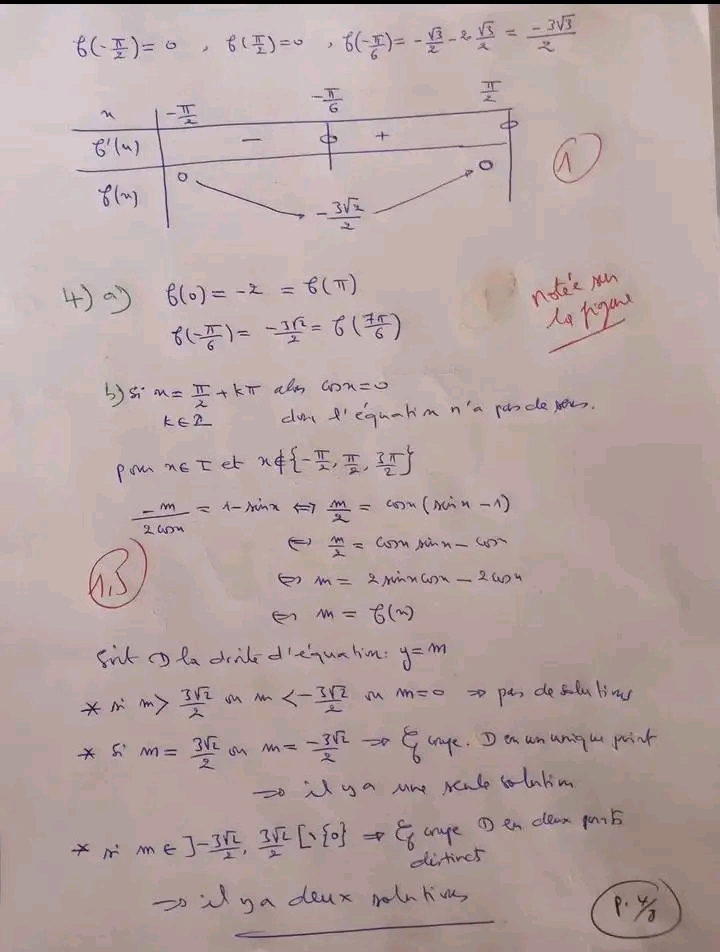 f(-π/2) = 0 , f(π/2) = 0 , f(-π/6) = -√3/2 - 2 √3/2 = -3√3/2
x | -π/2 -π/6 π/2
f'(x) | - 0 + 0
f(x) | 0 ↘ -3√2/2 ↗ 0
1
4) a) f(0) = -2 = f(π)
f(-π/6) = -3√2/2 = f(7π/6)
notée sur
la figure
b) Si x = π/2 + kπ alors cos x = 0
k ∈ Z donc l'équation n'a pas de sens.
pour x ∈ I et x ∉ {-π/2, π/2, 3π/2}
-m/(2cosx) = 1 - sinx ⇔ m/2 = cosx (sinx - 1)
⇔ m/2 = cosx sinx - cosx
⇔ m = 2 sinx cosx - 2 cosx
1,5
⇔ m = f(x)
Soit D la droite d'équation: y = m
* si m > 3√2/2 ou m < -3√2/2 ou m = 0 ⇒ pas de solutions
* Si m = 3√2/2 ou m = -3√2/2 ⇒ ζf coupe D en un unique point
⇒ il y a une seule solution
* si m ∈ ]-3√2/2, 3√2/2[ \ {0} ⇒ ζf coupe D en deux points
distincts
⇒ il y a deux solutions